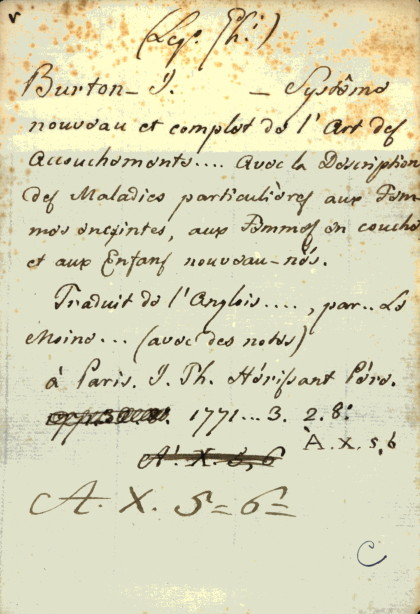 (Lesp. Ph.)
Burton – J. – Systême
nouveau et complet de l'Art des
Accouchements.... Avec la Description
des Maladies particulières aux Fem-
mes enceintes, aux Femmes en couche
et aux Enfans nouveau-nés.
Traduit de l'Anglois...., par.. Le
Moine... (avec des notes)
à Paris. J. Th. Hérissant Père.
1771... 3. 2. 8.
A. X. 5, 6
A. X. 5, 6
A. X. 5= 6=
C